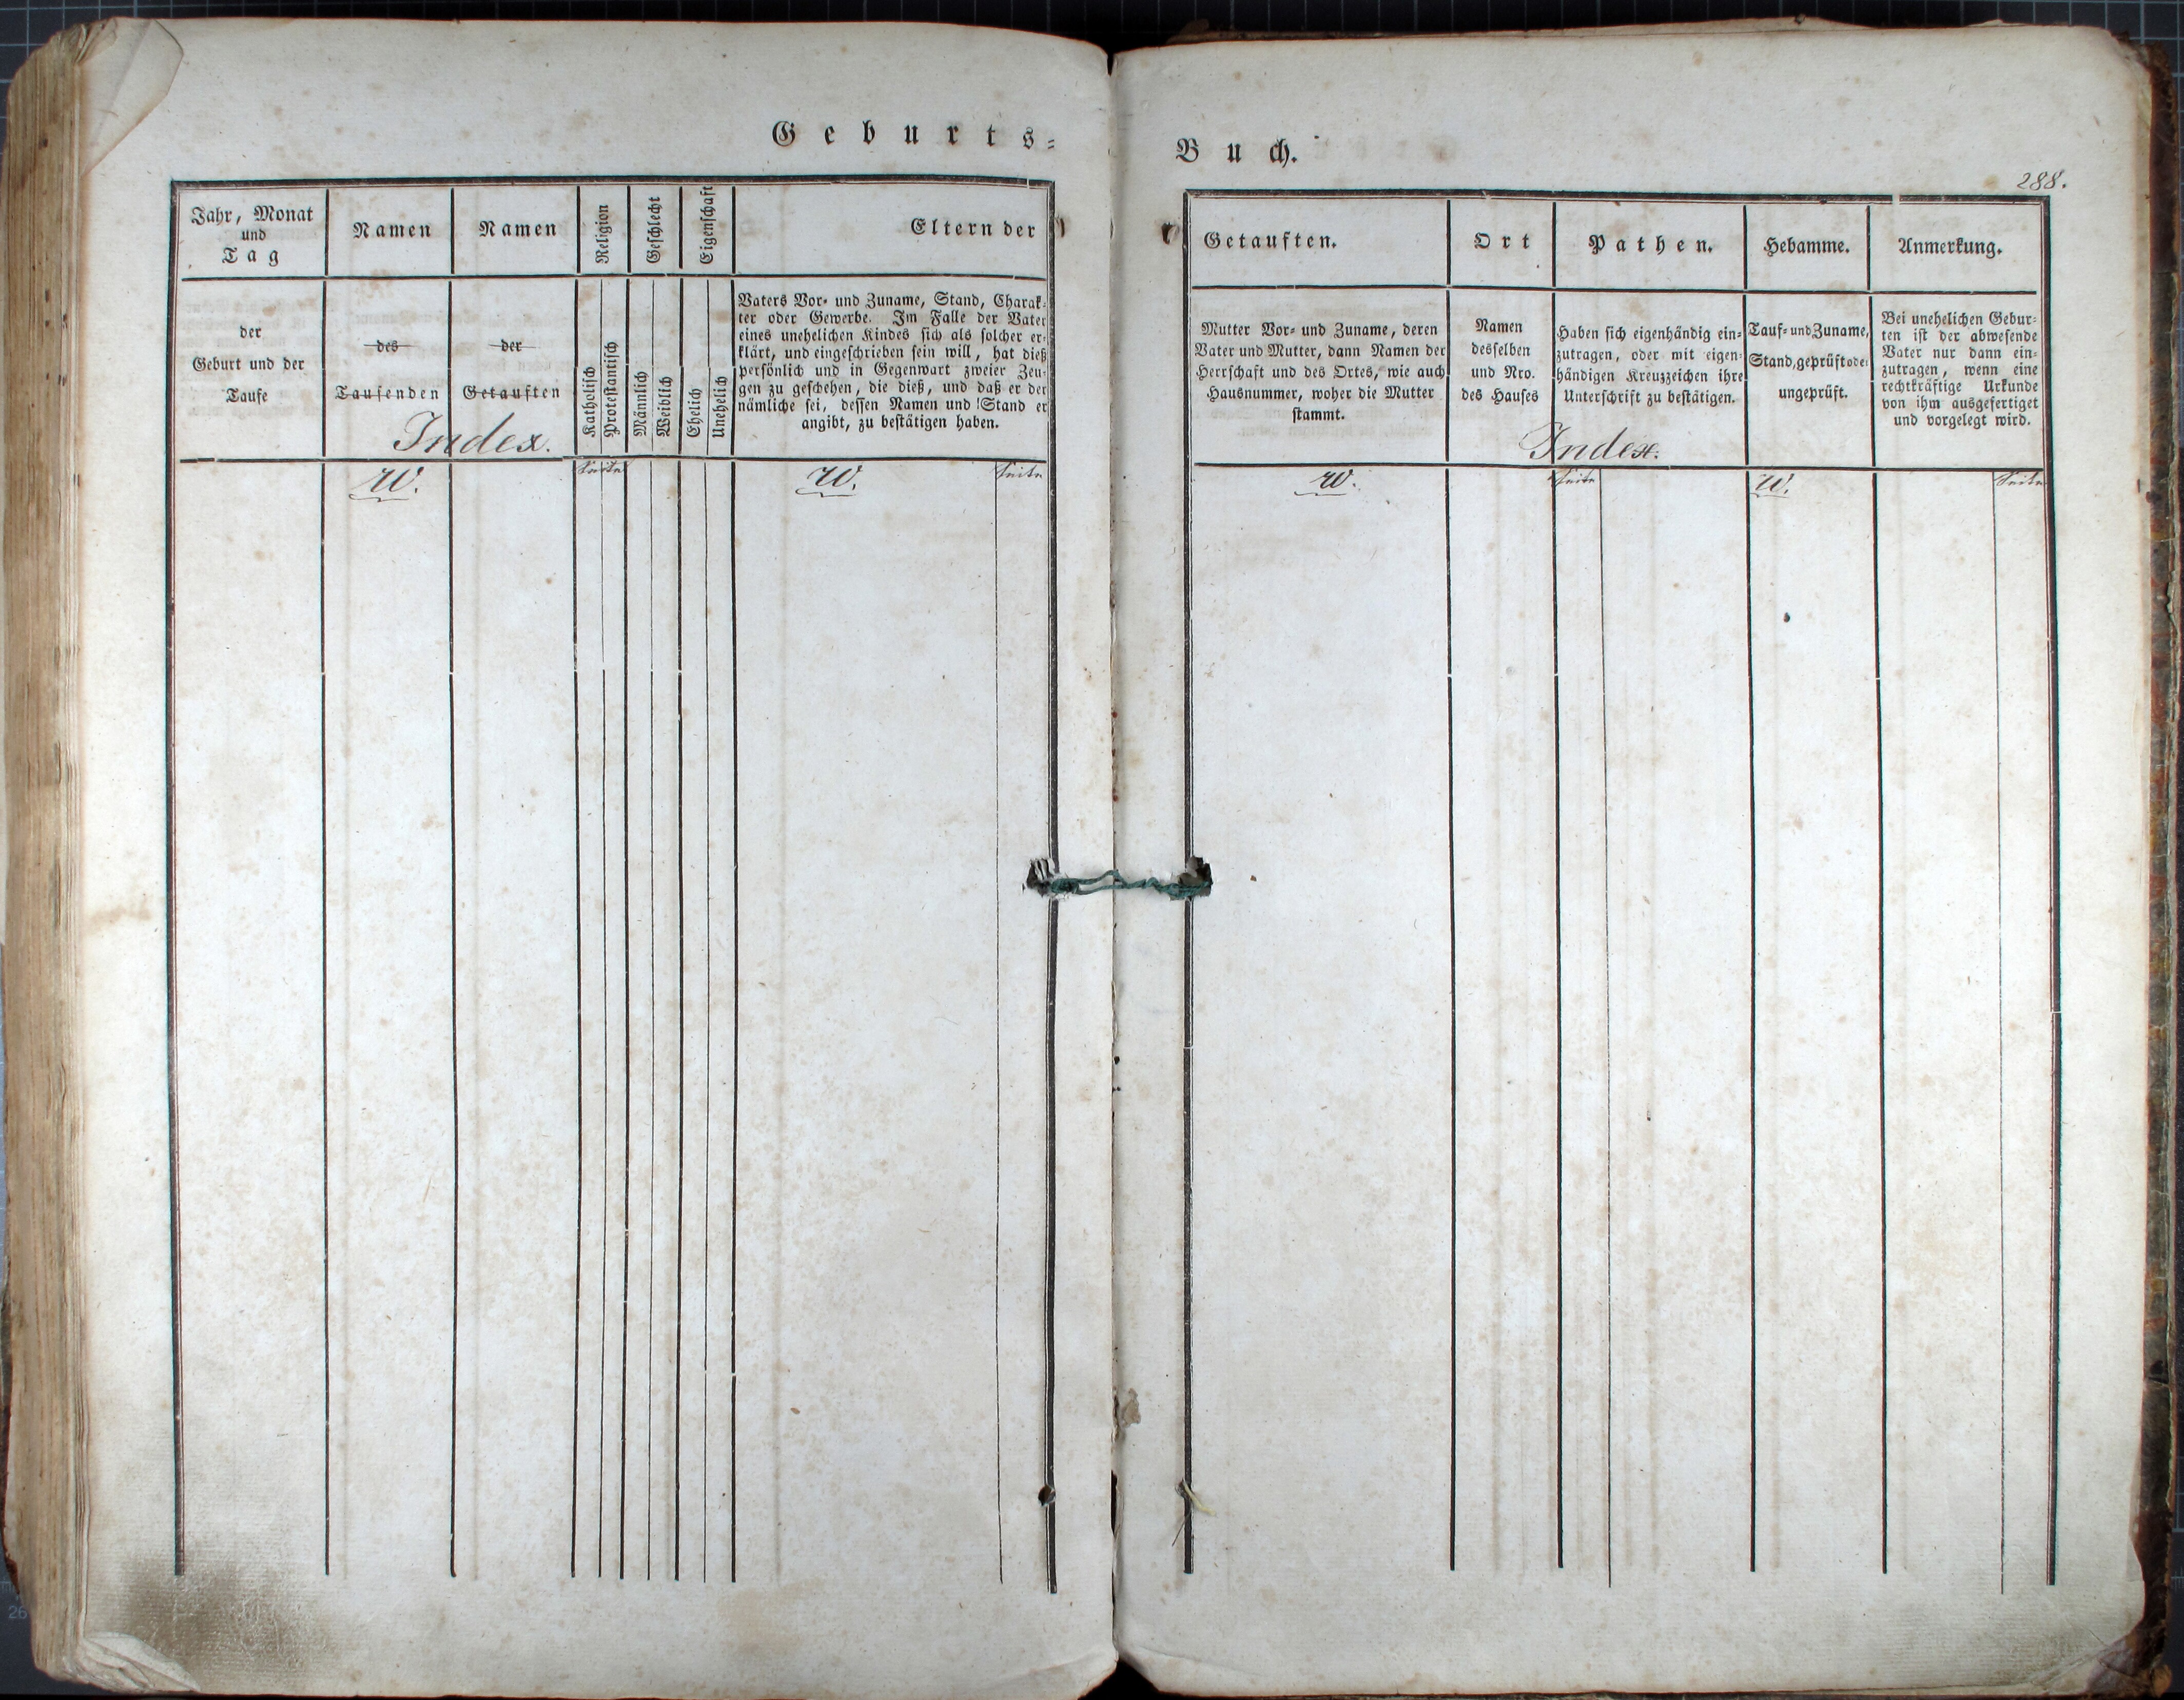 Geburts-
Jahr, Monat
und
Tag
Namen
Namen
Religion
Geschlecht
Eigenschaft
Eltern der
der
Geburt und der
Taufe
des
Taufenden
der
Getauften
Katholisch
Protestantisch
Männlich
Weiblich
Ehelich
Unehelich
Vaters Vor- und Zuname, Stand, Charak-
ter oder Gewerbe. Im Falle der Vater
eines unehelichen Kindes sich als solcher er-
klärt, und eingeschrieben sein will, hat dieß
persönlich und in Gegenwart zweier Zeu-
gen zu geschehen, die dieß, und daß er der
nämliche sei, dessen Namen und Stand er
angibt, zu bestätigen haben.
Index.
W.
Seite
W.
Seite
Buch.
288.
Getauften.
Ort
Pathen.
Hebamme.
Anmerkung.
Mutter Vor- und Zuname, deren
Vater und Mutter, dann Namen der
Herrschaft und des Ortes, wie auch
Hausnummer, woher die Mutter
stammt.
Namen
desselben
und Nro.
des Hauses
Haben sich eigenhändig ein-
zutragen, oder mit eigen-
händigen Kreuzzeichen ihre
Unterschrift zu bestätigen.
Tauf- und Zuname,
Stand, geprüft ode
ungeprüft.
Bei unehelichen Gebur-
ten ist der abwesende
Vater nur dann ein-
zutragen, wenn eine
rechtkräftige Urkunde
von ihm ausgefertiget
und vorgelegt wird.
Index.
W.
Seite
W.
Seite
26